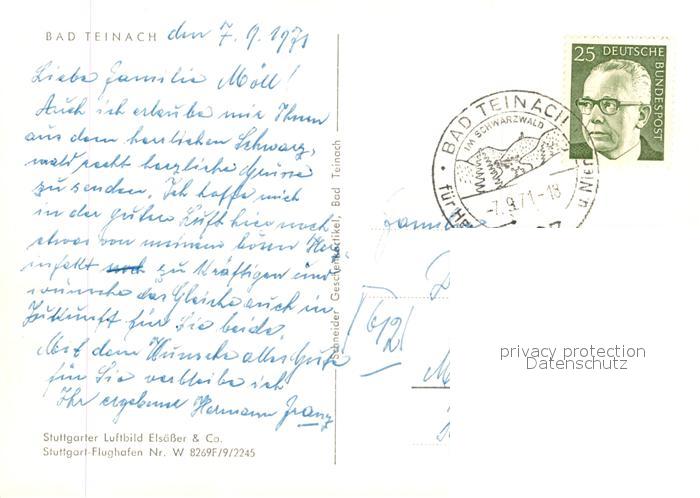 BAD TEINACH den 7.9.1971
Liebe Familie Möll!
Auch ich erlaube mir Ihnen
aus dem herrlichen Schwarz,
wald recht herzliche Grüsse
zu senden, Ich hoffe mich
in der guten Luft hier noch
etwas von meinem bösen Her
infakt zu kräftigen und
wünsche das Gleiche auch in
Zukunft für Sie beide
Mit dem Wunsche alles Gute
für Sie verbleibe ich
Ihr ergebener Hermann Franz
Stuttgarter Luftbild Elsäßer & Co.
Stuttgart-Flughafen Nr. W 8269F/9/2245
Schneider Geschenkartikel, Bad Teinach
25 DEUTSCHE
BUNDESPOST
BAD TEINACH
IM SCHWARZWALD
7.9.71-18
für He
u. Nier
Familie
privacy protection
Datenschutz